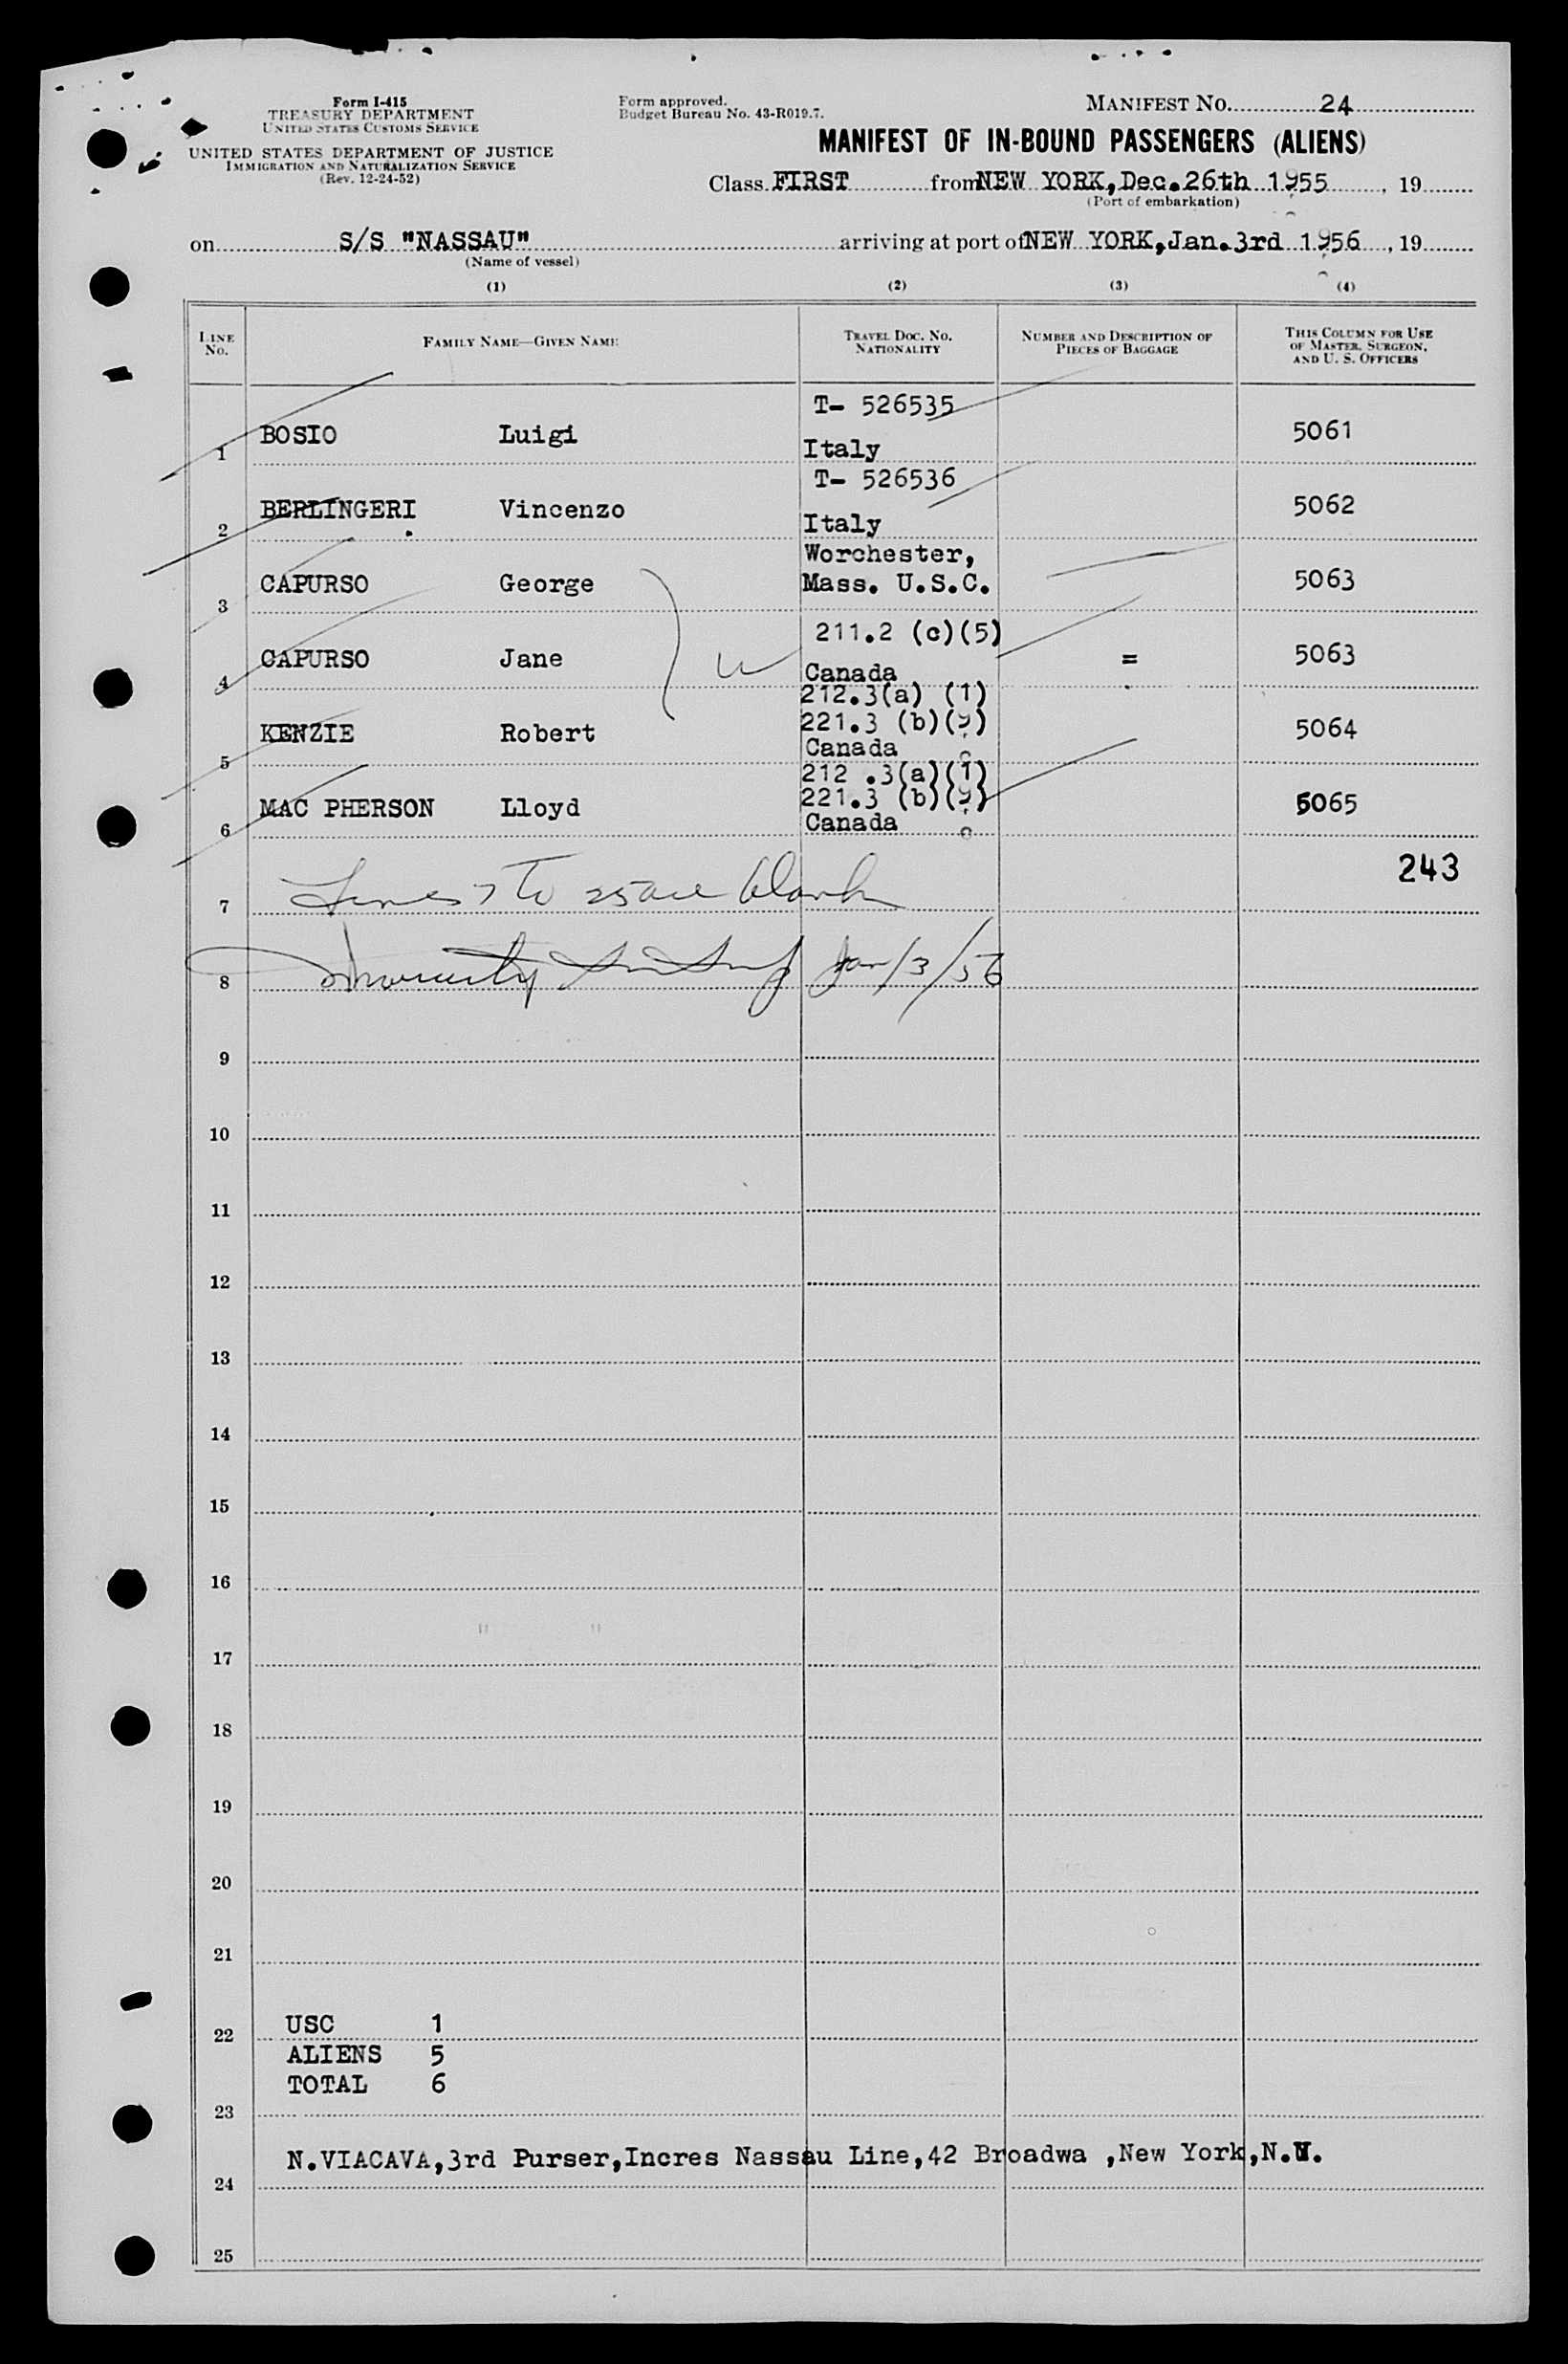 Form I-415
TREASURY DEPARTMENT
UNITED STATES CUSTOMS SERVICE
UNITED STATES DEPARTMENT OF JUSTICE
IMMIGRATION AND NATURALIZATION SERVICE
(Rev. 12-24-52)
Form approved.
Budget Bureau No. 43-R019.7.
MANIFEST NO. 24
MANIFEST OF IN-BOUND PASSENGERS (ALIENS)
Class FIRST from NEW YORK, Dec. 26th 1955, 19
(Port of embarkation)
on S/S "NASSAU" arriving at port of NEW YORK, Jan. 3rd 1956, 19
(Name of vessel)
(1) (2) (3) (4)
LINE NO. FAMILY NAME—GIVEN NAME TRAVEL DOC. NO. NATIONALITY NUMBER AND DESCRIPTION OF PIECES OF BAGGAGE THIS COLUMN FOR USE OF MASTER, SURGEON, AND U. S. OFFICERS
T- 526535
1 BOSIO Luigi Italy 5061
T- 526536
2 BERLINGERI Vincenzo Italy 5062
Worchester,
3 CAPURSO George Mass. U.S.C. 5063
211.2 (c)(5)
4 CAPURSO Jane Canada = 5063
212.3(a) (1)
221.3 (b)(9)
5 KENZIE Robert Canada 5064
212 .3(a)(1)
221.3 (b)(9)
6 MAC PHERSON Lloyd Canada 5065
243
7 Lines 7 to 25 are blank
8 Jan/3/56
9
10
11
12
13
14
15
16
17
18
19
20
21
22 USC 1
ALIENS 5
TOTAL 6
23
N.VIACAVA,3rd Purser,Incres Nassau Line,42 Broadwa ,New York,N.Y.
24
25